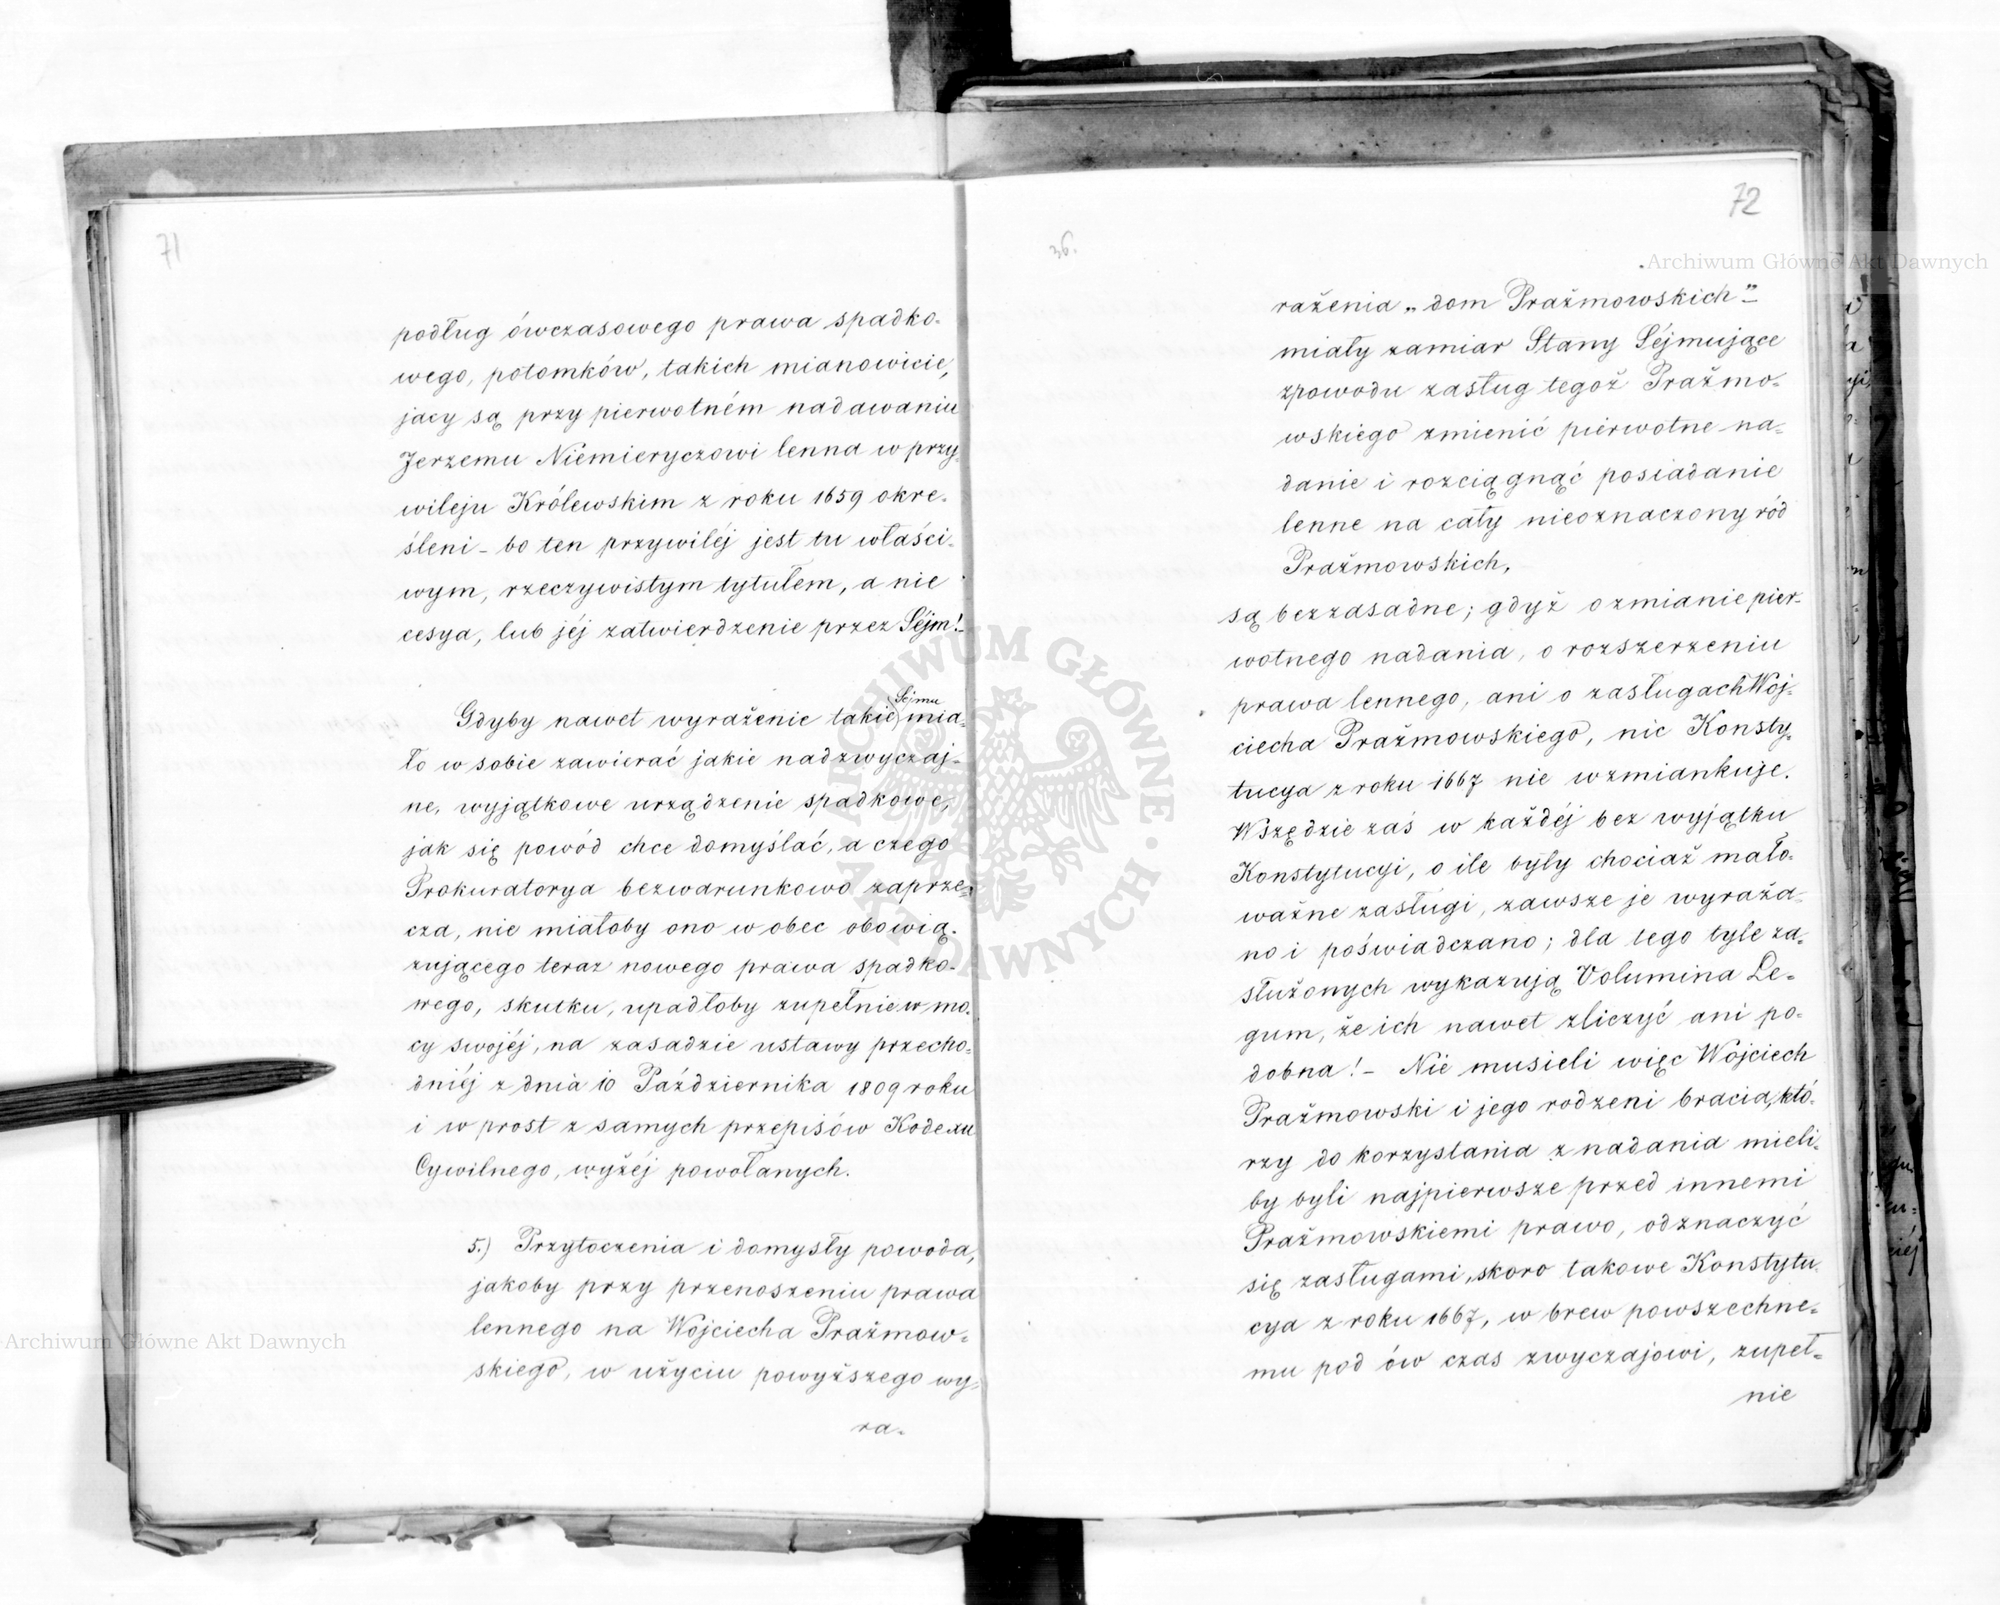 71
podług ówczasowego prawa spadko-
wego, potomków, takich mianowicie,
jacy są przy pierwotném nadawaniu
Jerzemu Niemieryczowi lenna w przy-
wileju Królewskim z roku 1659 okre-
śleni – bo ten przywiléj jest tu właści-
wym, rzeczywistym tytułem, a nie
cesya, lub jéj zatwierdzenie przez Séjm! –
Gdyby nawet wyrażenie takie Sejmu mia-
ło w sobie zawierać jakie nadzwyczaj-
ne, wyjątkowe urządzenie spadkowe,
jak się powód chce domyślać, a czego
Prokuratorya bezwarunkowo zaprze-
cza, nie miałoby ono w obec obowią-
zującego teraz nowego prawa spadko-
wego, skutku, upadłoby zupełnie w mo-
cy swojéj, na zasadzie ustawy przecho-
dniéj z dnia 10 Października 1809 roku
i w prost z samych przepisów Kodexu
Cywilnego, wyżéj powołanych.
5.) Przytoczenia i domysły powoda,
jakoby przy przenoszeniu prawa
lennego na Wojciecha Prażmow-
skiego, w użyciu powyższego wy-
ra-
36.
72
rażenia „dom Prażmowskich” –
miały zamiar Stany Séjmujące
z powodu zasług tegoż Prażmo-
wskiego zmienić pierwotne na-
danie i rozciągnąć posiadanie
lenne na cały nieoznaczony ród
Prażmowskich,
są bezzasadne; gdyż o zmianie pier-
wotnego nadania, o rozszerzeniu
prawa lennego, ani o zasługach Woj-
ciecha Prażmowskiego, nic Konsty-
tucya z roku 1667 nie wzmiankuje.
Wszędzie zaś w każdéj bez wyjątku
Konstytucyi, o ile były chociaż mało-
ważne zasługi, zawsze je wyraża-
no i poświadczano; dla tego tyle za-
służonych wykazują Volumina Le-
gum, że ich nawet zliczyć ani po-
dobna! – Nie musieli więc Wojciech
Prażmowski i jego rodzeni bracia, któ-
rzy do korzystania z nadania mieli-
by byli najpierwsze przed innemi
Prażmowskiemi prawo, odznaczyć
się zasługami, skoro takowe Konstytu-
cya z roku 1667, w brew powszechne-
mu pod ów czas zwyczajowi, zupeł-
nie
Archiwum Główne Akt Dawnych
Archiwum Główne Akt Dawnych
ARCHIWUM GŁÓWNE AKT DAWNYCH